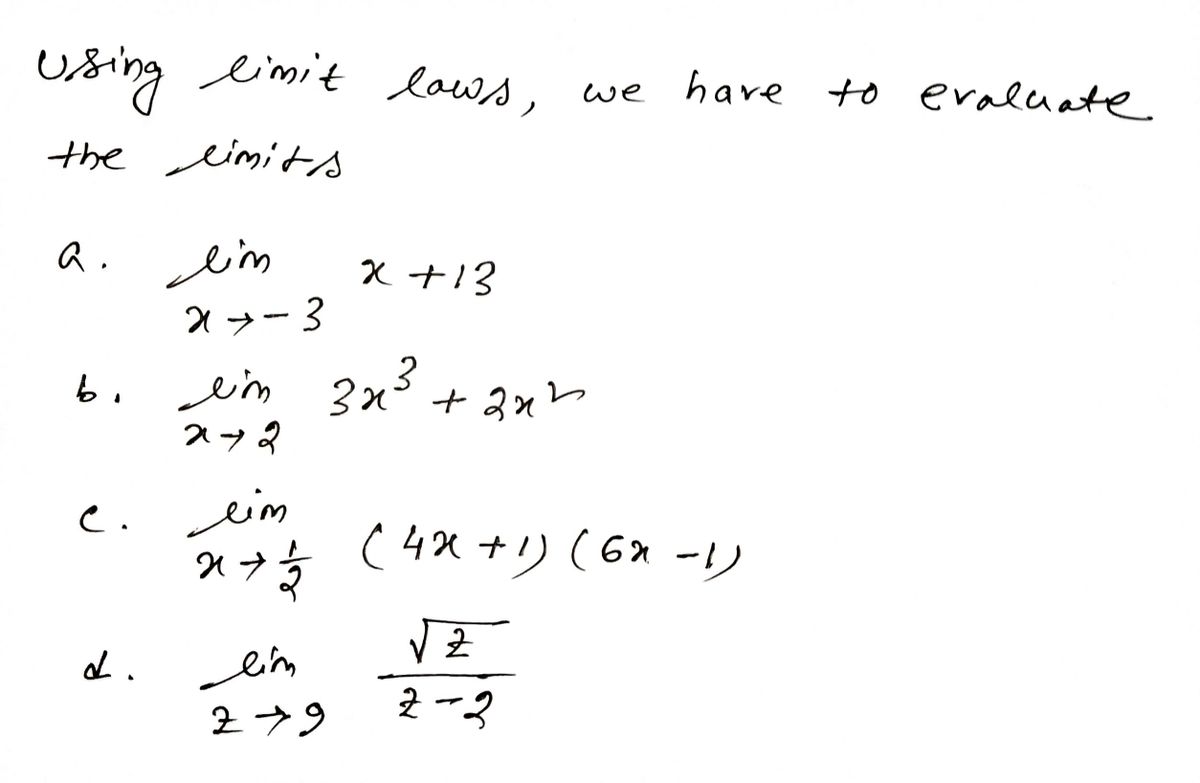 Using limit laws, we have to evaluate
the limits
a. lim x + 13
x → -3
b. lim 3x³ + 2x²
x → 2
c. lim (4x + 1) (6x - 1)
x → 1/2
d. lim √z / z - 2
z → 9